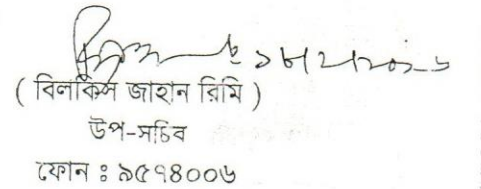 ( বিলকিস জাহান রিমি )
উপ-সচিব
ফোন ঃ ৯৫৭৪০০৬